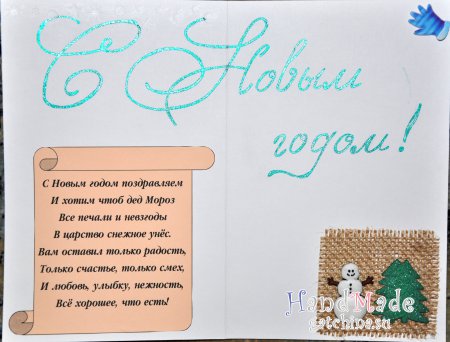 С Новым
годом!
С Новым годом поздравляем
И хотим чтоб дед Мороз
Все печали и невзгоды
В царство снежное унёс.
Вам оставил только радость,
Только счастье, только смех,
И любовь, улыбку, нежность,
Всё хорошее, что есть!
HandMade
gatchina.su